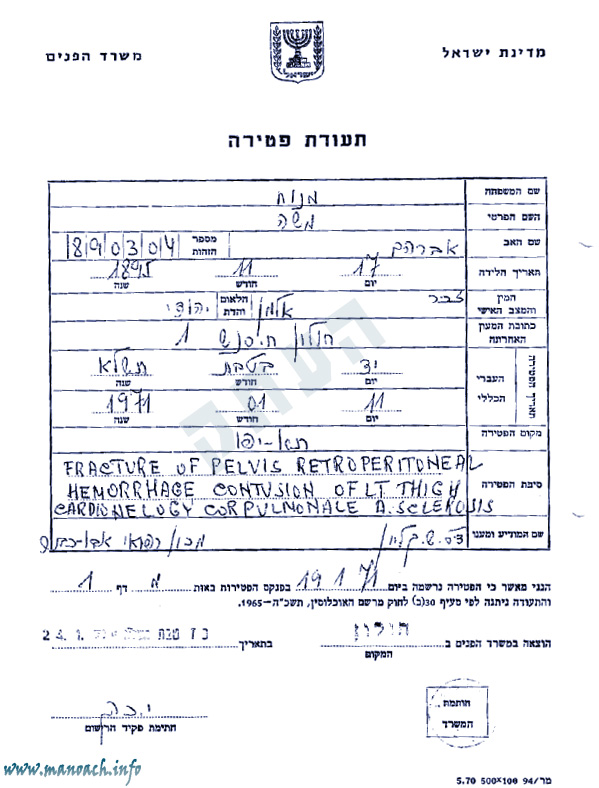 מדינת ישראל
משרד הפנים
ישראל
תעודת פטירה
שם המשפחה
מנוח
השם הפרטי
משה
שם האב
אברהם
מספר הזהות
890304
תאריך הלידה
17 11 1895
יום חודש שנה
המין והמצב האישי
זכר
אלמן
הלאום והדת
יהודי
כתובת המען האחרונה
חולון 1
תאריך הפטירה
העברי
יד בטבת תשלא
יום חודש שנה
הכללי
11 01 1971
יום חודש שנה
מקום הפטירה
תל-אביב-יפו
סיבת הפטירה
FRACTURE OF PELVIS RETROPERITONEAL
HEMORRHAGE CONTUSION OF LT THIGH
CARDIONELOGY CORPULMONALE A. SCLEROSIS
שם המודיע ומענו
מכון רפואי אבו-כביר
הנני מאשר כי הפטירה נרשמה ביום 19 1 71 בפנקס הפטירות באות מ דף 1
והתעודה ניתנה לפי סעיף 30(ב) לחוק מרשם האוכלוסין, תשכ"ה-1965.
הוצאה במשרד הפנים ב חולון בתאריך כז טבת 24.1.
המקום
חותמת המשרד
חתימת פקיד הרישום
העתק
www.manoach.info
מר/94 500×100 5.70